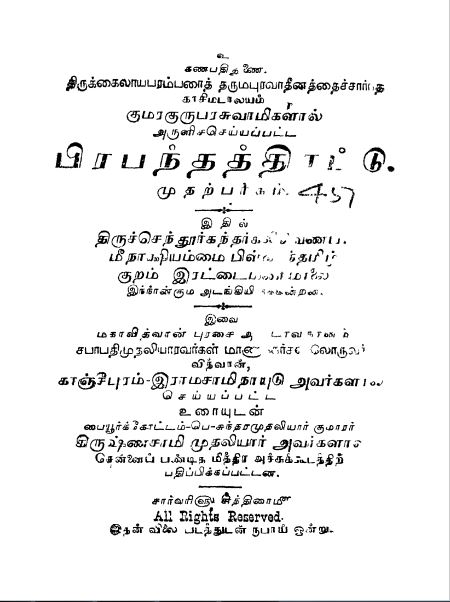 உ
கணபதி துணை.
திருக்கைலாயபரம்பரைத் தருமபுரவாதீனத்தைச்சார்ந்த
காசிமடாலயம்
குமரகுருபரசுவாமிகளால்
அருளிச்செய்யப்பட்ட
பிரபந்தத்திரட்டு.
முதற்பாகம். 457
இதில்
திருச்செந்தூர்கந்தர்கலிவெண்பா.
மீநாக்ஷியம்மை பிள்ளைத்தமிழ்
குறம் இரட்டைமணிமாலை
இந்நான்கும அடங்கியிருக்கின்றன.
இவை
மகாவித்வான் புரசை
சபாபதிமுதலியாரவர்கள் லொருவர்
வித்வான்,
காஞ்சீபுரம்-இராமசாமிநாயுடு அவர்களால
செய்யப்பட்ட
உரையுடன்
பையூர்க்கோட்டம்-பெ-சுந்தரமுதலியார் குமாரர்
கிருஷ்ணசாமி முதலியார் அவர்களால
சென்னைப் பண்டித மித்திர அச்சுக்கூடத்திற்
பதிப்பிக்கப்பட்டன.
சார்வரிஹு சித்திரைமீ
All Rights Reserved.
இதன் விலை படத்துடன் ரூபாய் ஒன்று.